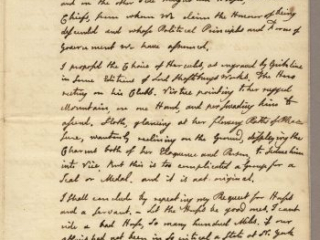 and on the other
Chiefs, from whom We claim the Honour of being
descended and whose Political Principles and Form of
Government We have assumed.
I proposed the Choice of Hercules, as engraved by Gribeline
in some Editions of Lord Shaftsburys Works. The Hero
resting on his Clubb. Virtue pointing to her rugged
Mountain, on one Hand, and perswading him to
ascend. Sloth, glancing at her flowery Paths of Plea
sure, wantonly reclining on the Ground, displaying the
Charms both of her Eloquence and Person, to seduce him
into Vice. But this is too complicated a Group for a
Seal or Medal, and it is not original.
I shall conclude by repeating my Request for Horses
and a servant. Let the Horses be good ones. I cant
ride a bad Horse, so many hundred Miles. If our
not been in so critical a State at N. York